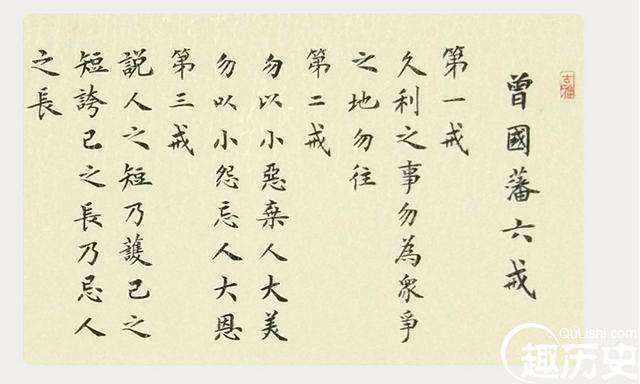 曾國藩六戒
第一戒
久利之事勿為衆爭
之地勿往
第二戒
勿以小惡棄人大美
勿以小怨忘人大恩
第三戒
説人之短乃護己之
短誇己之長乃忌人
之長
QuLishi.com
趣历史